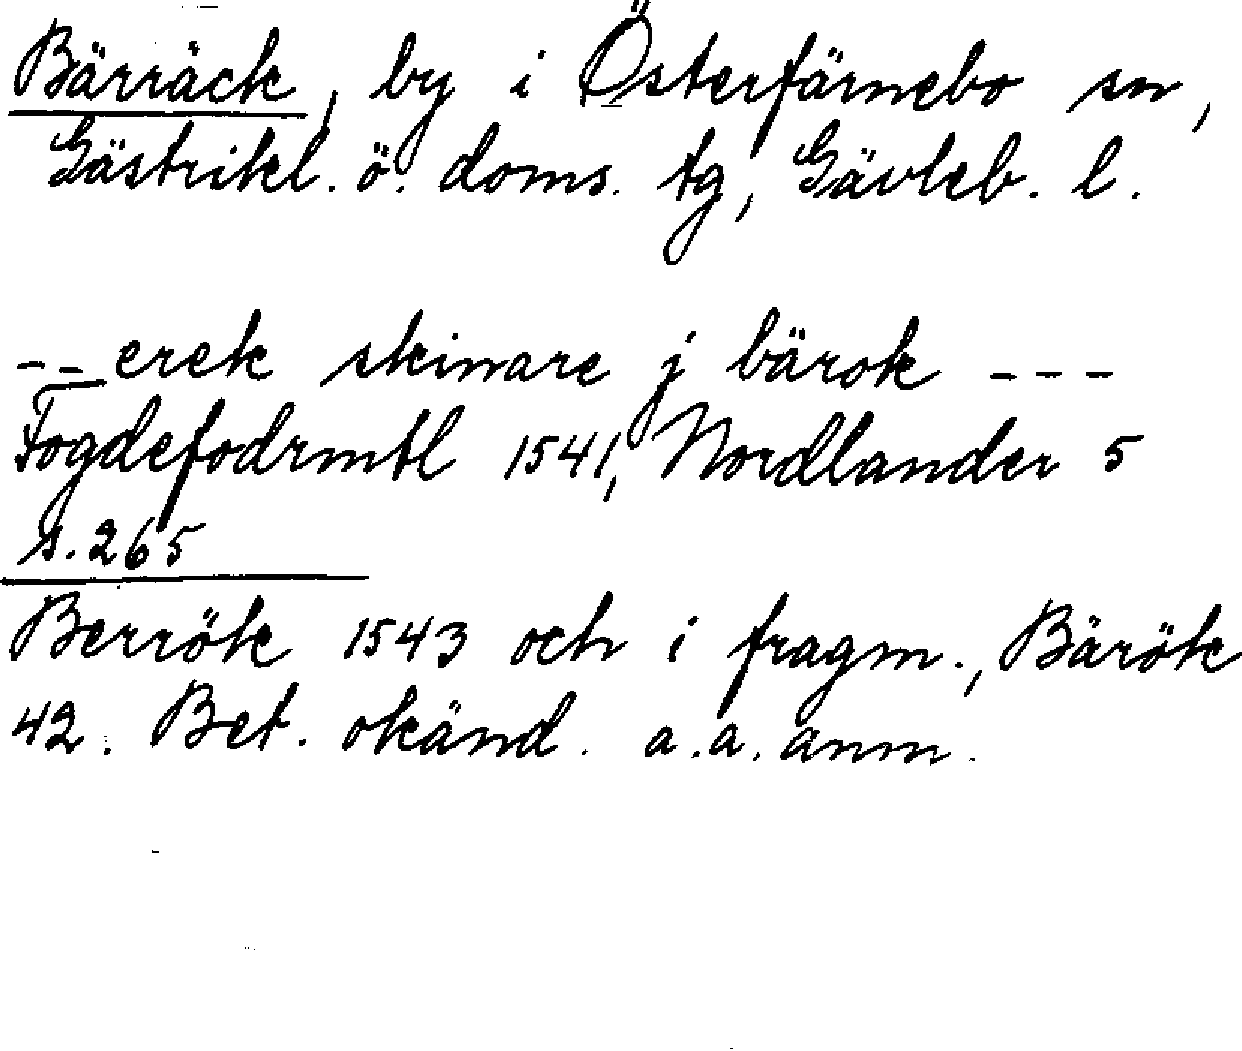 Bärräck, by i Österfärnebo sn,
Gästrikl. ö. doms. tg, Gävleb. l.
-- erek skinare j bärok ---
Fogdefodrmtl 1541, Nordlander 5
s. 265
Berrök 1543 och i fragm., Bärök
42. Bet. okänd. a.a. anm.